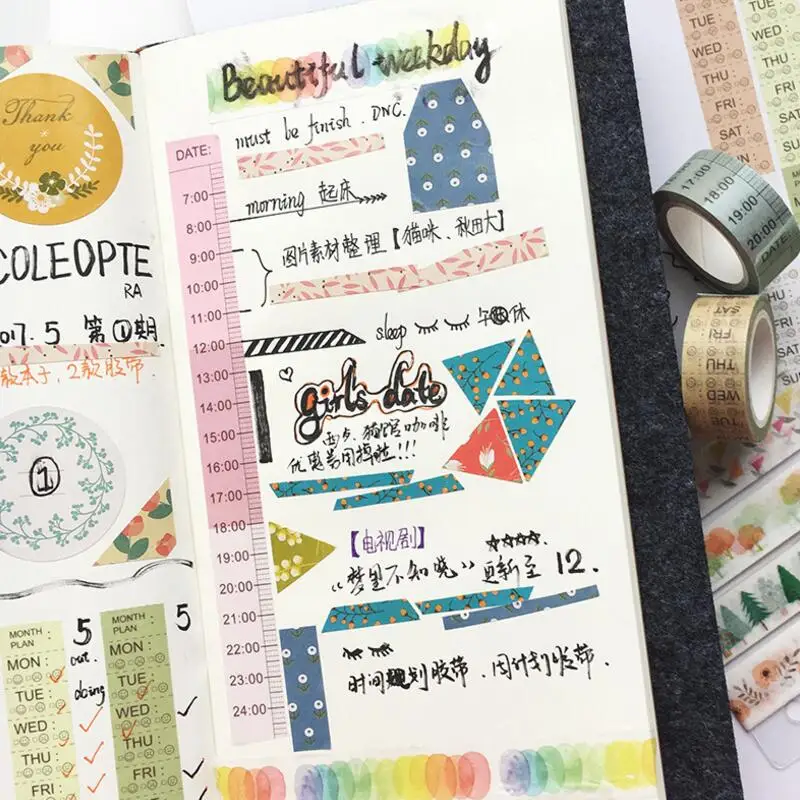 Thank
you
COLEOPTE
RA
017.5 第①期
2款胶带
1
MONTH PLAN: 5
MON: out.
TUE: doing
WED
THU:
FRI:
MONTH PLAN: 5
MON:
TUE:
WED
THU:
FRI
Beautiful weekday
must be finish. DNC.
DATE:
7:00
morning 起床
8:00
9:00
图片素材整理【猫咪、秋田犬】
10:00
11:00
sleep 午休
12:00
13:00
girl's date
14:00
15:00
猫馆咖啡
16:00
优惠券用掉啦!!!
17:00
18:00
【电视剧】
19:00
《梦里不知晓》更新至 12.
20:00
21:00
22:00
时间规划胶带.周计划胶带.
23:00
24:00
TUE:
WED:
THU:
FRI:
SAT:
SUN:
TUE
WED:
THU:
FRI:
SAT:
SUN
17:00
18:00
19:00
20:00
DATE:
SAT
FRI:
THU:
WED
TUE